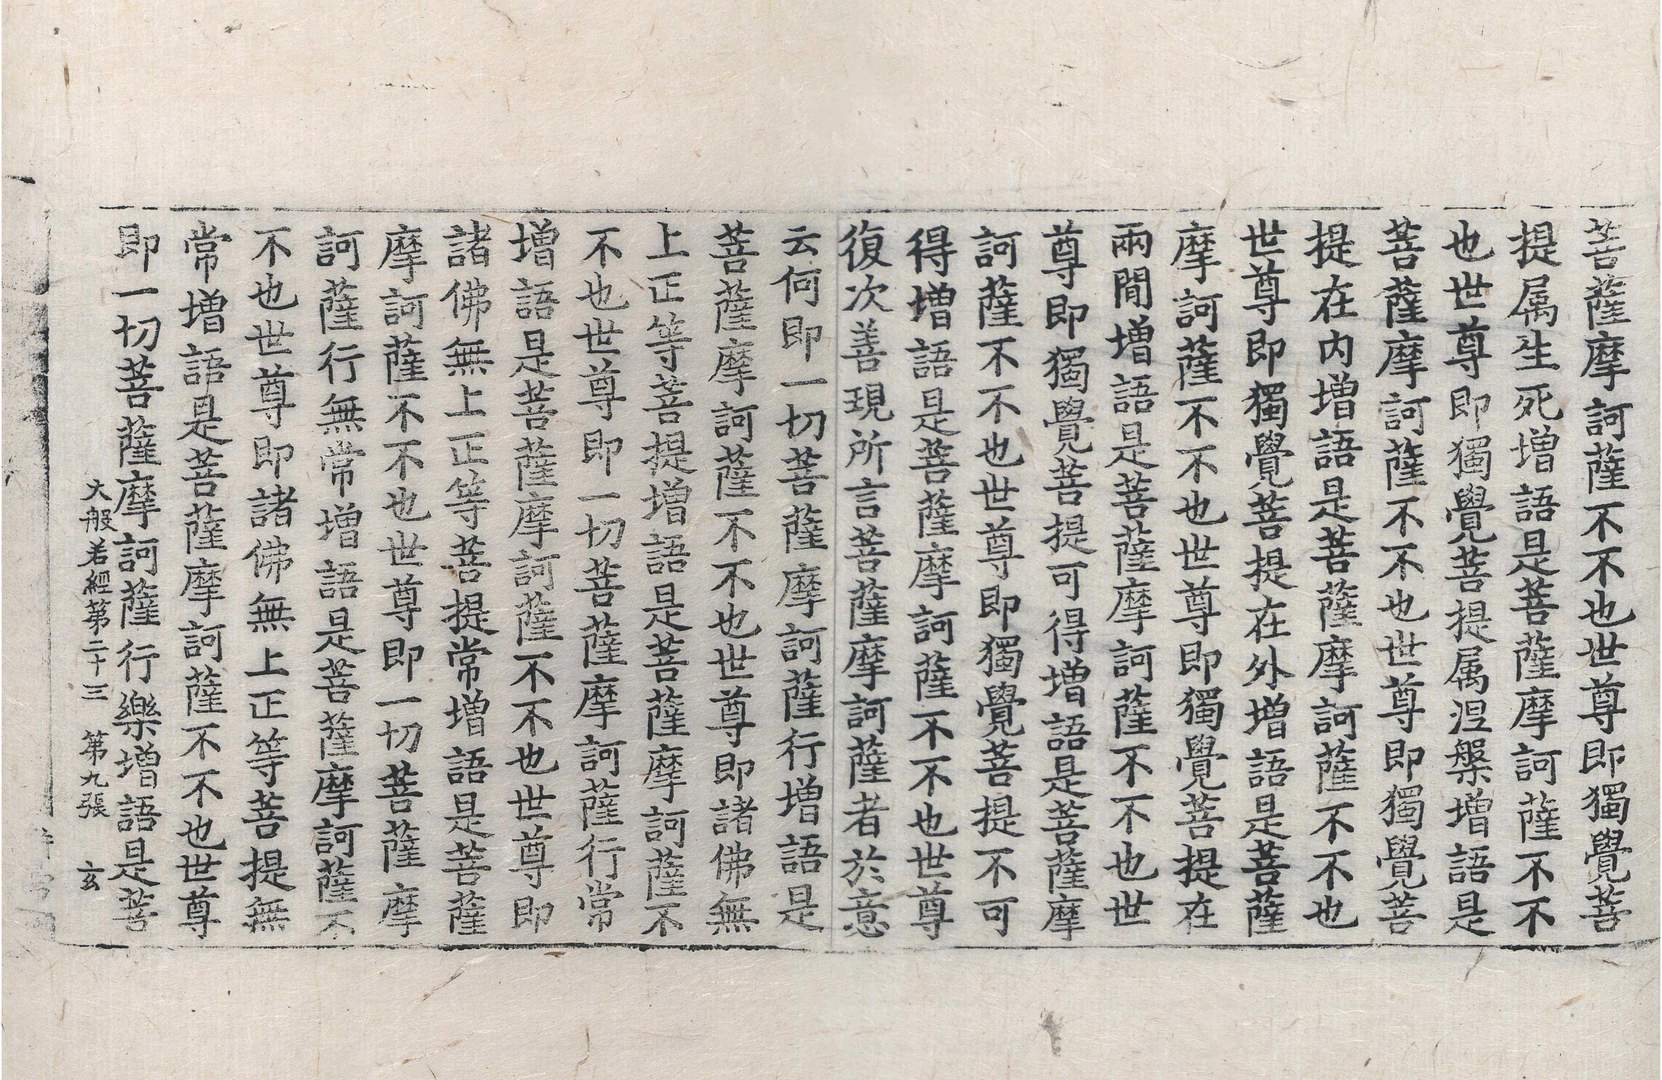 菩薩摩訶薩不不也世尊即獨覺菩
提属生死增語是菩薩摩訶薩不不
也世尊即獨覺菩提属涅槃增語是
菩薩摩訶薩不不也世尊即獨覺菩
提在内增語是菩薩摩訶薩不不也
世尊即獨覺菩提在外增語是菩薩
摩訶薩不不也世尊即獨覺菩提在
兩閒增語是菩薩摩訶薩不不也世
尊即獨覺菩提可得增語是菩薩摩
訶薩不不也世尊即獨覺菩提不可
得增語是菩薩摩訶薩不不也世尊
復次善現所言菩薩摩訶薩者於意
云何即一切菩薩摩訶薩行增語是
菩薩摩訶薩不不也世尊即諸佛無
上正等菩提增語是菩薩摩訶薩不
不也世尊即一切菩薩摩訶薩行常
增語是菩薩摩訶薩不不也世尊即
諸佛無上正等菩提常增語是菩薩
摩訶薩不不也世尊即一切菩薩摩
訶薩行無常增語是菩薩摩訶薩不
不也世尊即諸佛無上正等菩提無
常增語是菩薩摩訶薩不不也世尊
即一切菩薩摩訶薩行樂增語是菩
大般若經第二十三 第九張 玄